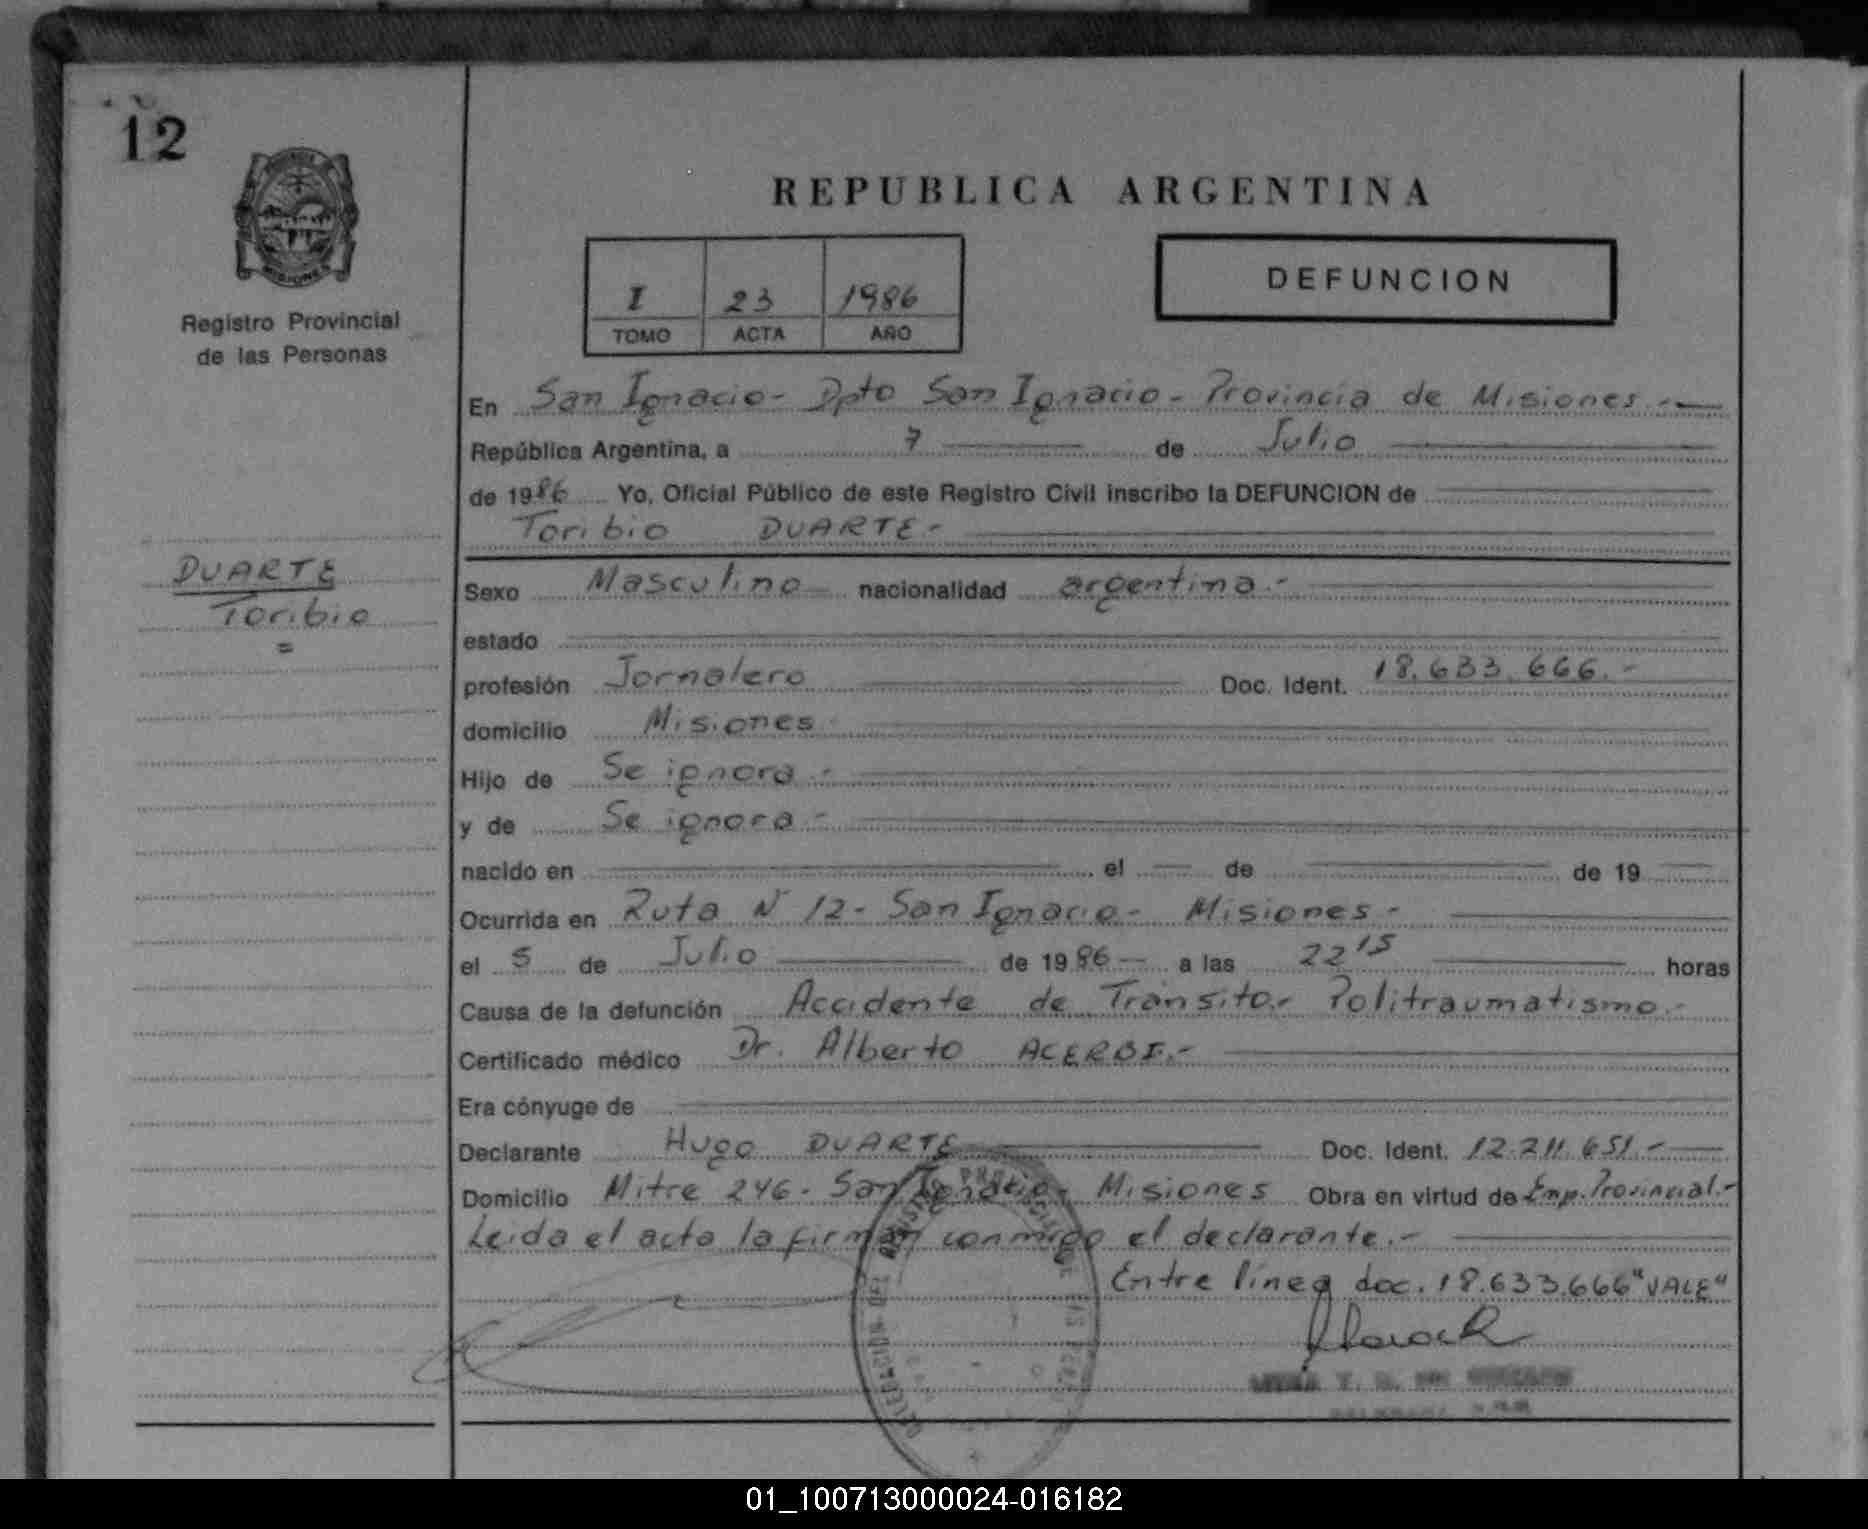 12
MISIONES
Registro Provincial
de las Personas
DUARTE
Toribio
=
REPUBLICA ARGENTINA
I 23 1986
TOMO ACTA AÑO
DEFUNCION
En San Ignacio - Dpto San Ignacio - Provincia de Misiones.-
República Argentina, a 7 de Julio
de 1986 Yo, Oficial Público de este Registro Civil inscribo la DEFUNCION de
Toribio DUARTE-
Sexo Masculino nacionalidad argentina.-
estado
profesión Jornalero Doc. Ident. 18.633.666.-
domicilio Misiones
Hijo de Se ignora.-
y de Se ignora-
nacido en el de de 19
Ocurrida en Ruta Nº 12- San Ignacio- Misiones-
el 5 de Julio de 1986 a las 22 15 horas
Causa de la defunción Accidente de Tránsito.- Politraumatismo.-
Certificado médico Dr. Alberto ACERBI.-
Era cónyuge de
Declarante Hugo DUARTE Doc. Ident. 12.211.651.-
Domicilio Mitre 246- San Ignacio- Misiones Obra en virtud de Emp. Provincial.-
Leida el acta la firman conmigo el declarante.-
Entre línea doc. 18.633.666 "VALE"
DELEGACION
01_100713000024-016182